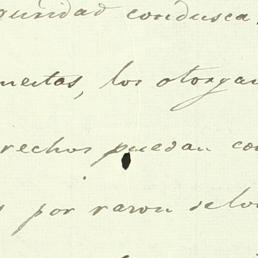 guridad condusca,
uestas, los otorgan
rechos puedan con
por razon de los